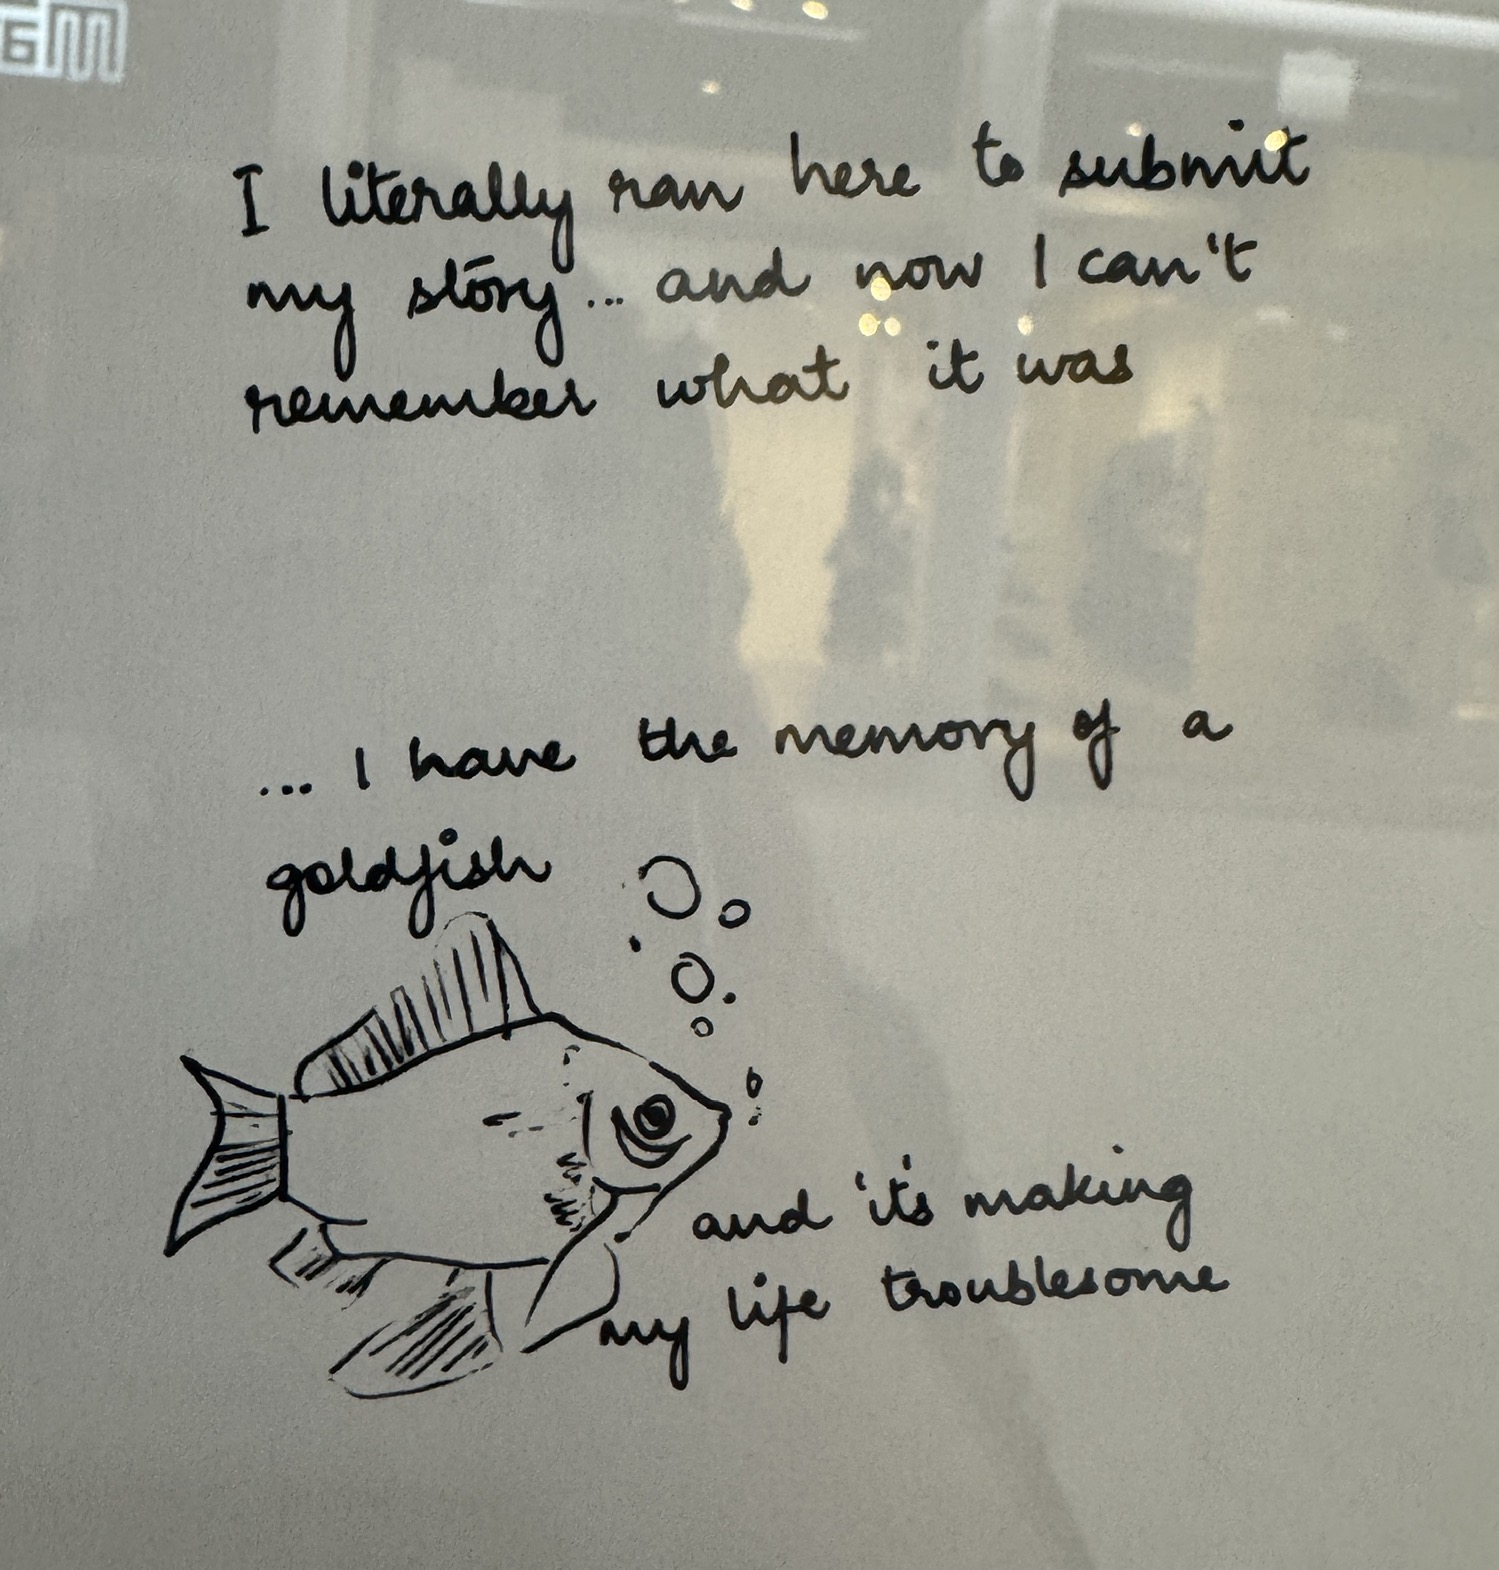 GM
I literally ran here to submit
my story... and now I can't
remember what it was
... I have the memory of a
goldfish
and it's making
my life troublesome